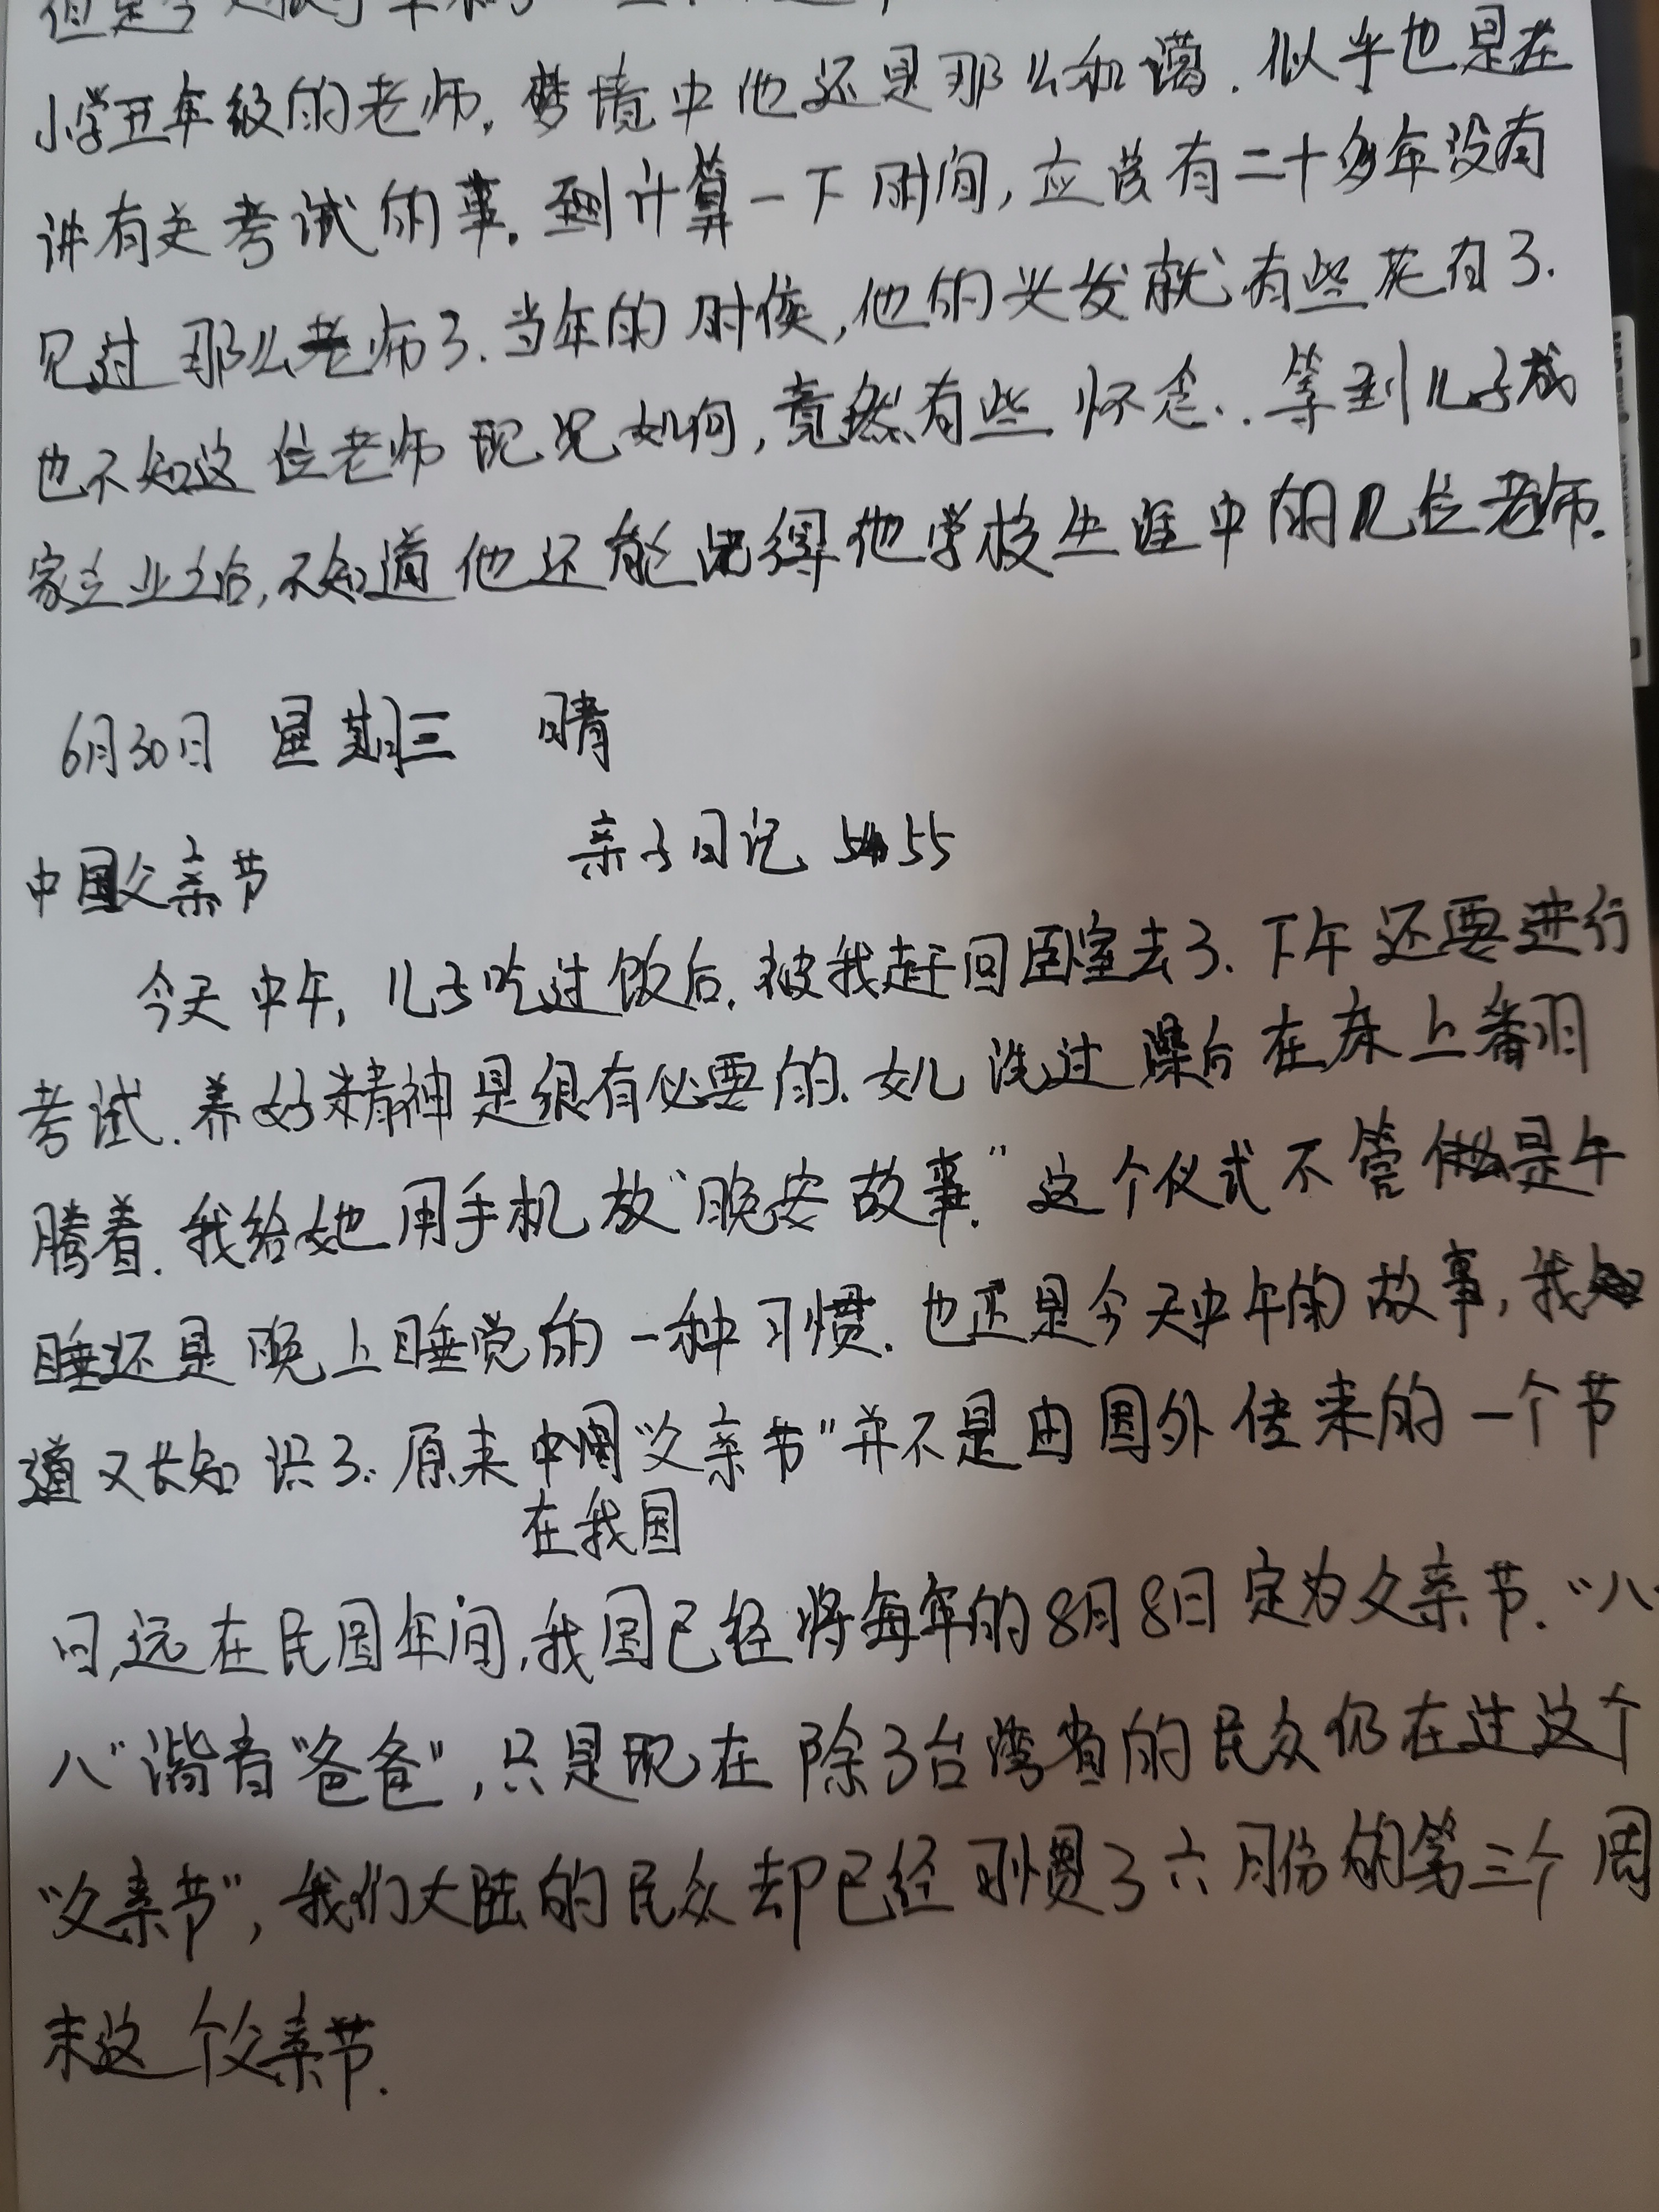 但是今天
小学五年级的老师,梦境中他还是那么和蔼.似乎也是在
讲有关考试的事.到计算一下时间,应该有二十多年没有
见过那么老师了.当年的时候,他的头发就有些花白了.
也不知这位老师现况如何,竟然有些怀念..等到儿子成
家立业之后,不知道他还能记得他学校生涯中的几位老师.
6月30日 星期三 晴
亲子日记 55
中国父亲节
今天中午,儿子吃过饭后.被我赶回卧室去了.下午还要进行
考试.养好精神是很有必要的.女儿洗过澡后在床上翻
腾着.我给她用手机放“晚安故事.”这个仪式不管是午
睡还是晚上睡觉的一种习惯.也正是今天中午的故事,我知
道又长知识了.原来中国“父亲节”并不是由国外传来的一个节
在我国
日,远在民国年间,我国已经将每年的8月8日定为父亲节.“八
八”谐音“爸爸”,只是现在除了台湾省的民众仍在过这个
“父亲节”,我们大陆的民众却已经习惯了六月份的第三个周
末这个父亲节.